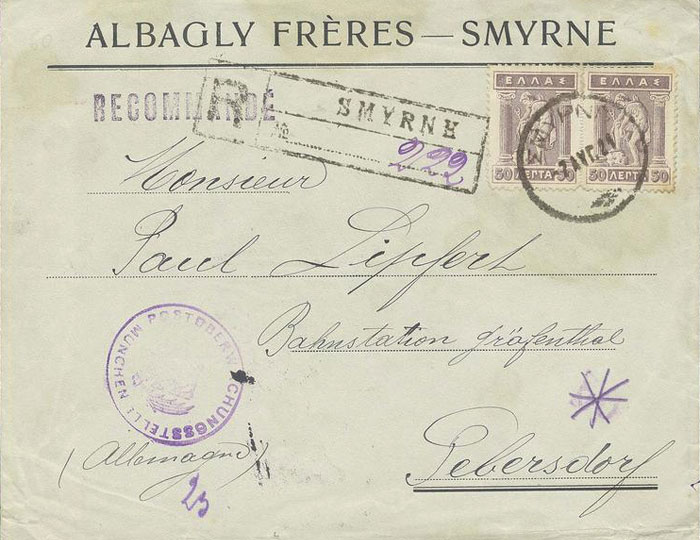 ALBAGLY FRÈRES — SMYRNE
RECOMMANDÉ
R
SMYRNE
No 222
ΕΛΛΑΣ ΕΛΛΑΣ
50 ΛΕΠΤΑ 50 ΛΕΠΤΑ 50
Monsieur
Paul Lipfert
Bahnstation Gräfenthal
POSTÜBERWACHUNGSSTELLE MÜNCHEN
(Allemagne)
Lebersdorf
23